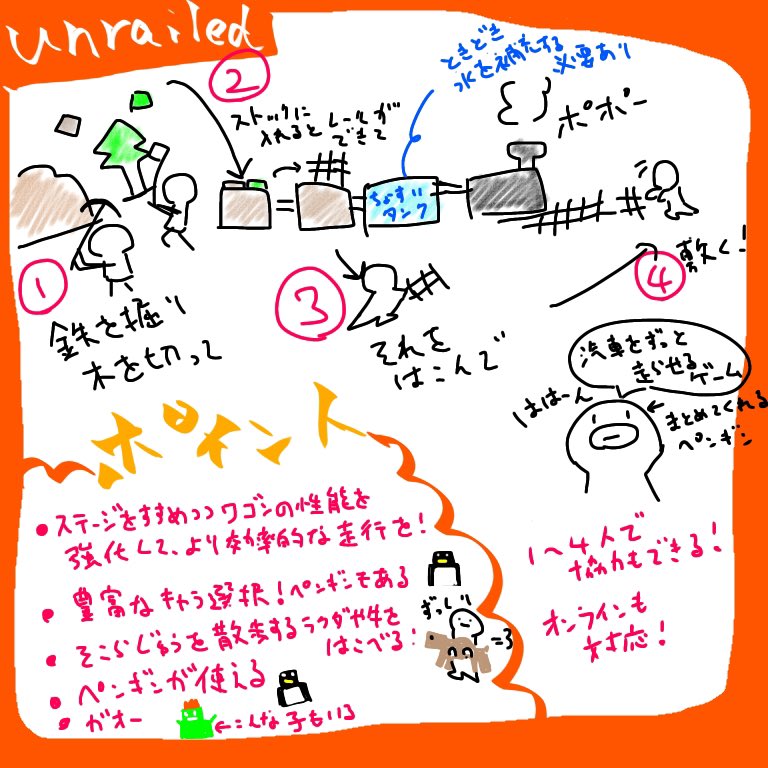 unrailed
②
ストックに
入れると
レールが
できて
ときどき
水を補充する
必要あり
ポポー
ちょすい
タンク
①
鉄を掘り
木を切って
③
それを
はこんで
④
敷く!
汽車をずっと
走らせる
ゲーム
ははーん
←まとめてくれる
ペンギン
ポイント
●ステージをすすめつつワゴンの性能を
強化して、より効率的な走行を!
●豊富なキャラ選択!ペンギンもある
●そこらじゅうを散歩するラクダや牛を
はこべる!
●ペンギンが使える
●ガオー
←こんな子もいる
ずっし
1〜4人で
協力もできる!
オンラインも
対応!